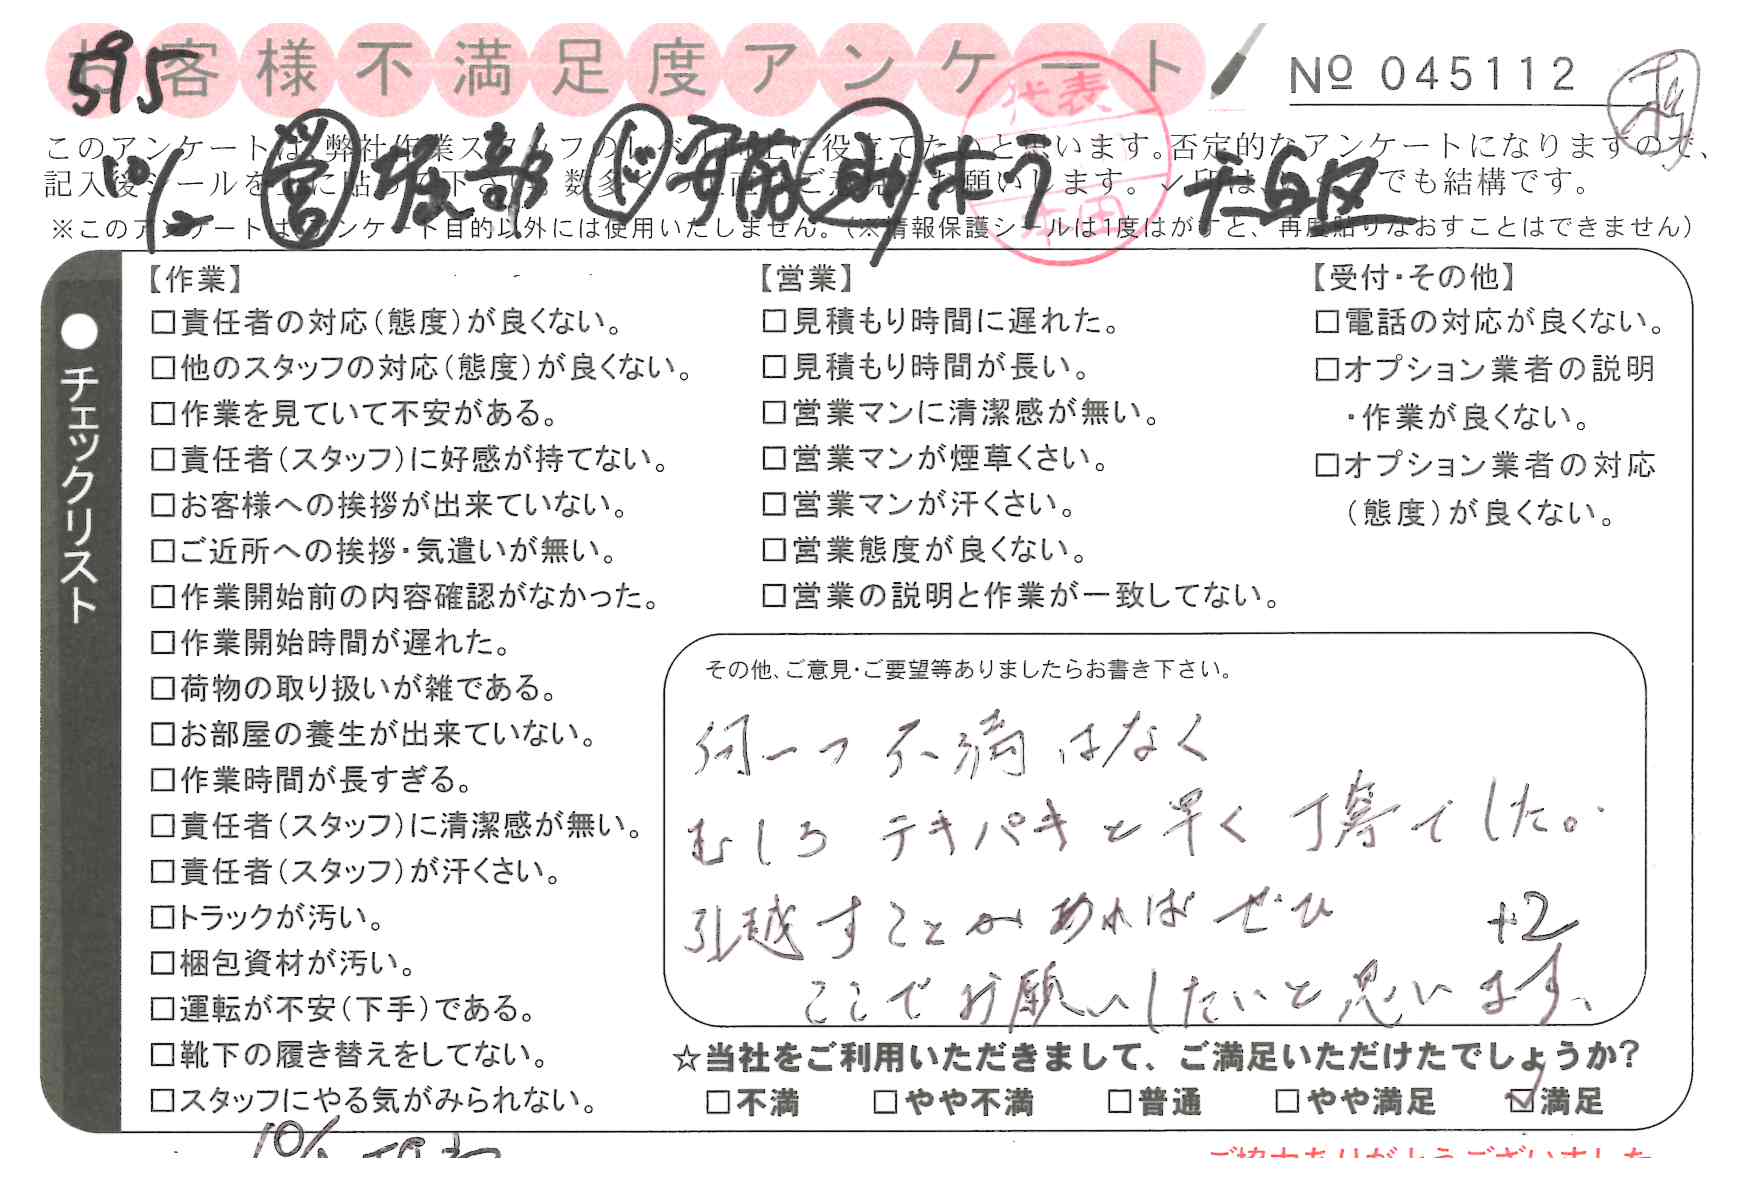 お客様不満足度アンケート
№ 045112
595
このアンケートは、弊社作業スタッフのレベル向上に役立てたいと思います。否定的なアンケートになりますので、
記入後シールを上に貼って下さい。数多くのご意見をお願いします。✓印は、いくつでも結構です。
※このアンケートはアンケート目的以外には使用いたしません。(※情報保護シールは1度はがすと、再度貼りなおすことはできません)
10/2 営 服部 ド 安藤 助 ホウ 千種区
代表
本田
●チェックリスト
【作業】
□責任者の対応(態度)が良くない。
□他のスタッフの対応(態度)が良くない。
□作業を見ていて不安がある。
□責任者(スタッフ)に好感が持てない。
□お客様への挨拶が出来ていない。
□ご近所への挨拶・気遣いが無い。
□作業開始前の内容確認がなかった。
□作業開始時間が遅れた。
□荷物の取り扱いが雑である。
□お部屋の養生が出来ていない。
□作業時間が長すぎる。
□責任者(スタッフ)に清潔感が無い。
□責任者(スタッフ)が汗くさい。
□トラックが汚い。
□梱包資材が汚い。
□運転が不安(下手)である。
□靴下の履き替えをしてない。
□スタッフにやる気がみられない。
【営業】
□見積もり時間に遅れた。
□見積もり時間が長い。
□営業マンに清潔感が無い。
□営業マンが煙草くさい。
□営業マンが汗くさい。
□営業態度が良くない。
□営業の説明と作業が一致してない。
【受付・その他】
□電話の対応が良くない。
□オプション業者の説明
・作業が良くない。
□オプション業者の対応
(態度)が良くない。
その他、ご意見・ご要望等ありましたらお書き下さい。
何一つ不満はなく
むしろ テキパキと早く丁寧でした。
引越すことがあればぜひ
+2
ここでお願いしたいと思います。
☆当社をご利用いただきまして、ご満足いただけたでしょうか?
□不満 □やや不満 □普通 □やや満足 ☑満足
ご協力ありがとうございました